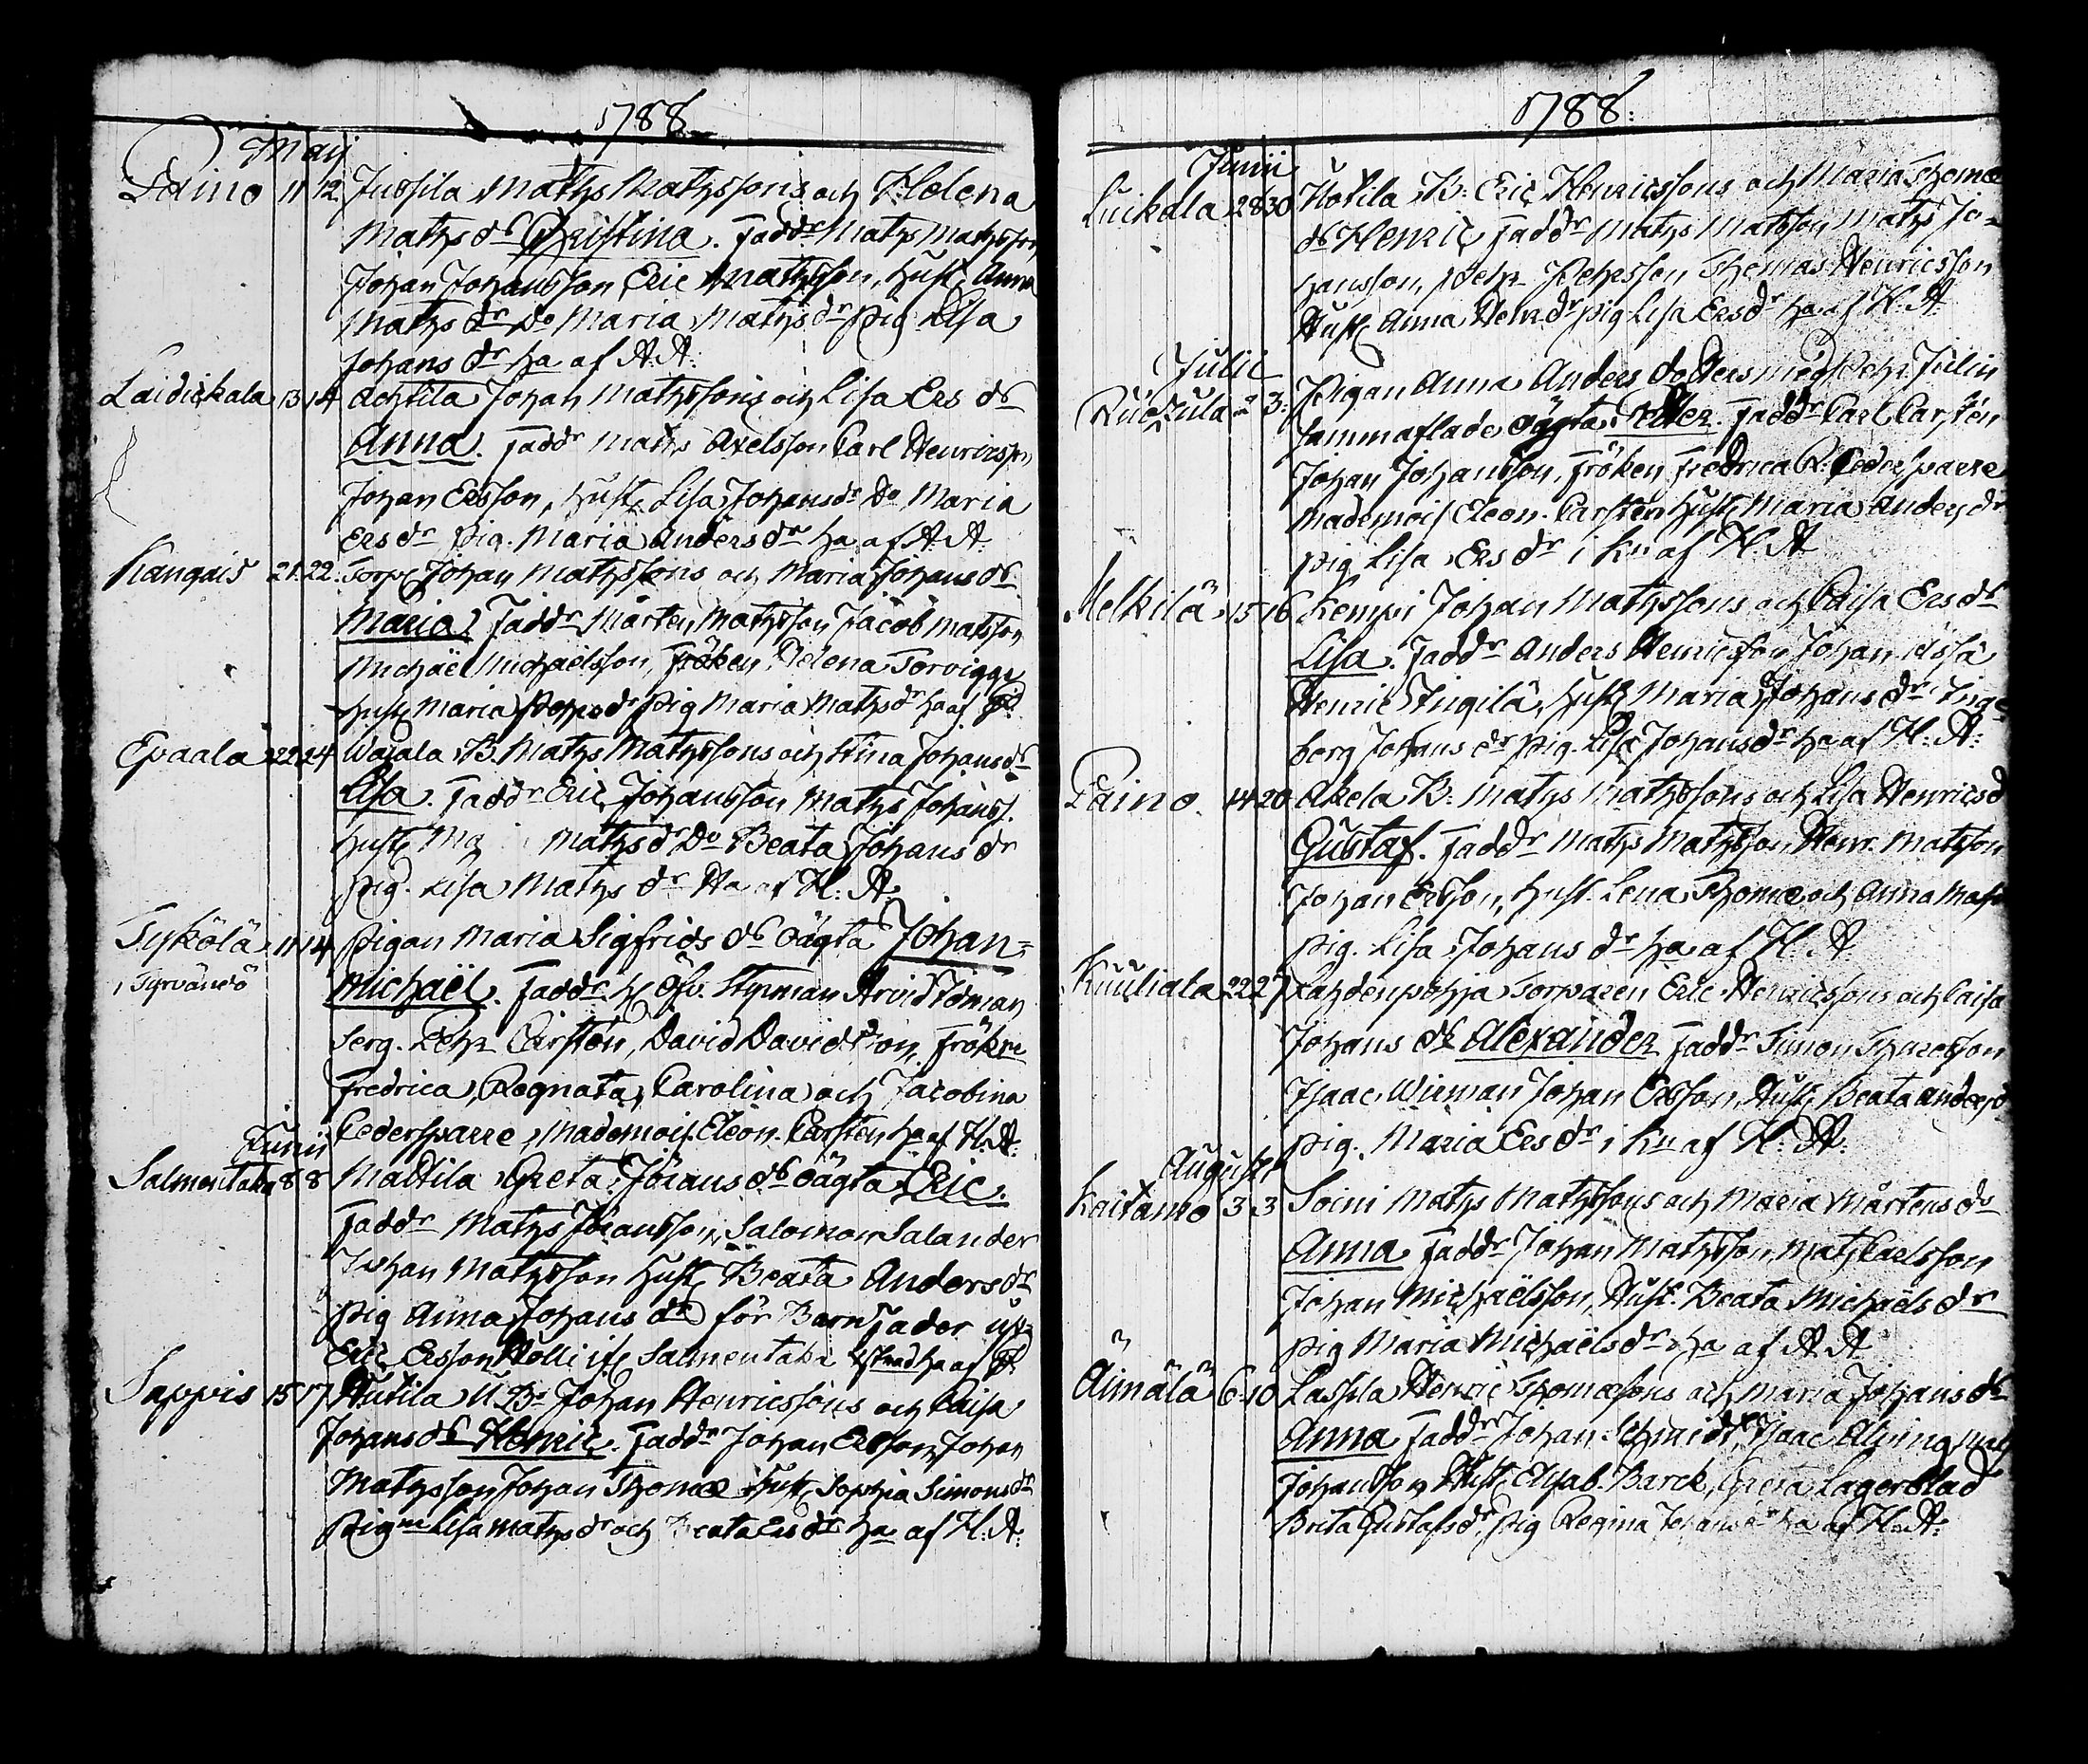 1788
Maij
Paino 11 12 Jussila Matys Matyssons och Helena
Matys dr Christina. Faddr Matys Matysson
Johan Johansson Eric Matysson, Hust Anna
Matys dr Do Maria Matys dr pig Lisa
Johans dr ha af A. A.
Laidickala 13 14 Achtila Johan Matyssons och Lisa Ers dr
Anna. Faddr Matys Axelsson Carl Henricsson
Johan Ersson, Hust Lisa Johans dr Do Maria
Ers dr pig. Maria Anders dr ha af A. A.
Kangais 21 22. Torp Johan Matyssons och Maria Johans dr
Maria. Faddr Mårten Matysson Jacob Matsson
Michaël Michaëlsson, Fröken Helena Torvigge
Hust Maria dr pig Maria Matys dr ha af
Evaala 22 24 Wajala B. Matys Matyssons och Stina Johans dr
Lisa. Faddr Eric Johansson Matys Johanss.
Hust Mg Matys dr Do Beata Johans dr
pig. Lisa Matys dr Ha af H. A.
Tykölä 11 14 Pigan Maria Sigfrids dr oägta Johan=
i Tyrväntö Michaël. Faddr H Öfv. Styrman Arvid Idman
Serg. Pehr Carstén, David Davidsson, Frökne
Fredrica, Regnata, Carolina och Jacobina
Cedersparre, Mademois. Eleon. Carsten ha af H. A.
Junii
Salmentaka 8 8 Mattila Greta Jörans dr oägta Eric.
Faddr Matys Jöransson, Salomon Salander
Johan Matysson Hust Beata Anders dr
pig Anna Johans dr för Barnfader up
Eric Ersson Salmentaka ha af
Sappis 15 17 Hutila U. B. Johan Henricssons och Caisa
Johans dr Henric. Faddr Johan Ersson, Johan
Matysson Johan Thomæ Hust Sophia Simons dr
Pigne Lisa Matys dr och Beata Ers dr ha af H. A.
1788.
Junii
Luikala 28 30 Hotila B. Eric Henricssons och Maria Thomæ
dr Henric Faddr Matys Matsson Matys Jo=
hansson, Pehr Pehrsson Thomas Henricsson
Hust Anna Henr dr pig Lisa Ers dr ha af H. A.
Julii
3. Pigan Anna Anders dotters med Pehr Julin
sammaflade oägta Faddr Carl Carstén
Johan Johansson, Fröken Fredrica R. Cedersparre
Mademois Eleon. Carsten Hust Maria Anders dr
pig Lisa Ers dr i Kn af H. A
Melkilä 15 16 Kempi Johan Matyssons och Caisa Ers dr
Lisa. Faddr Anders Henricsson Johan
Henric Hust Maria Johans dr Inge
berg Johans dr pig. Lisa Johans dr ha af H. A.
Paino. 14 20 Akela B. Matys Matyssons och Lisa Henrics d
Gustaf. Faddr Matys Matysson, Henr. Matsson
Johan Ersson, Hust. Lena Thomæ och Anna Mats
pig. Lisa Johans dr ha af H. A
Kuuliala 22 27 Lahdenpohja Torparen Eric Henricssons och Caisa
Johans dr Alexander Faddr Simon
Isaac Wirman Johan Ersson, Hust Beata Anders d
pig. Maria Ers dr i Kn af H. A.
August
Kaitamo 3 3 Soini Matys Matyssons och Maria Mårtens dr
Anna Faddr Johan Matysson, Mats Carlsson
Johan Michaëlsson, Hust. Beata Michaëls dr
pig Maria Michaëls dr ha af A. A
Äimälä 6 10 Lassila Henric Thomæsons och Maria Johans dr
Anna Faddr Johan Schmidt, Isaac
Johansson Hust Elisab. Barck, Greta Lagerblad
Brita Gustafs dr pig Regina Johans dr ha af H. A.